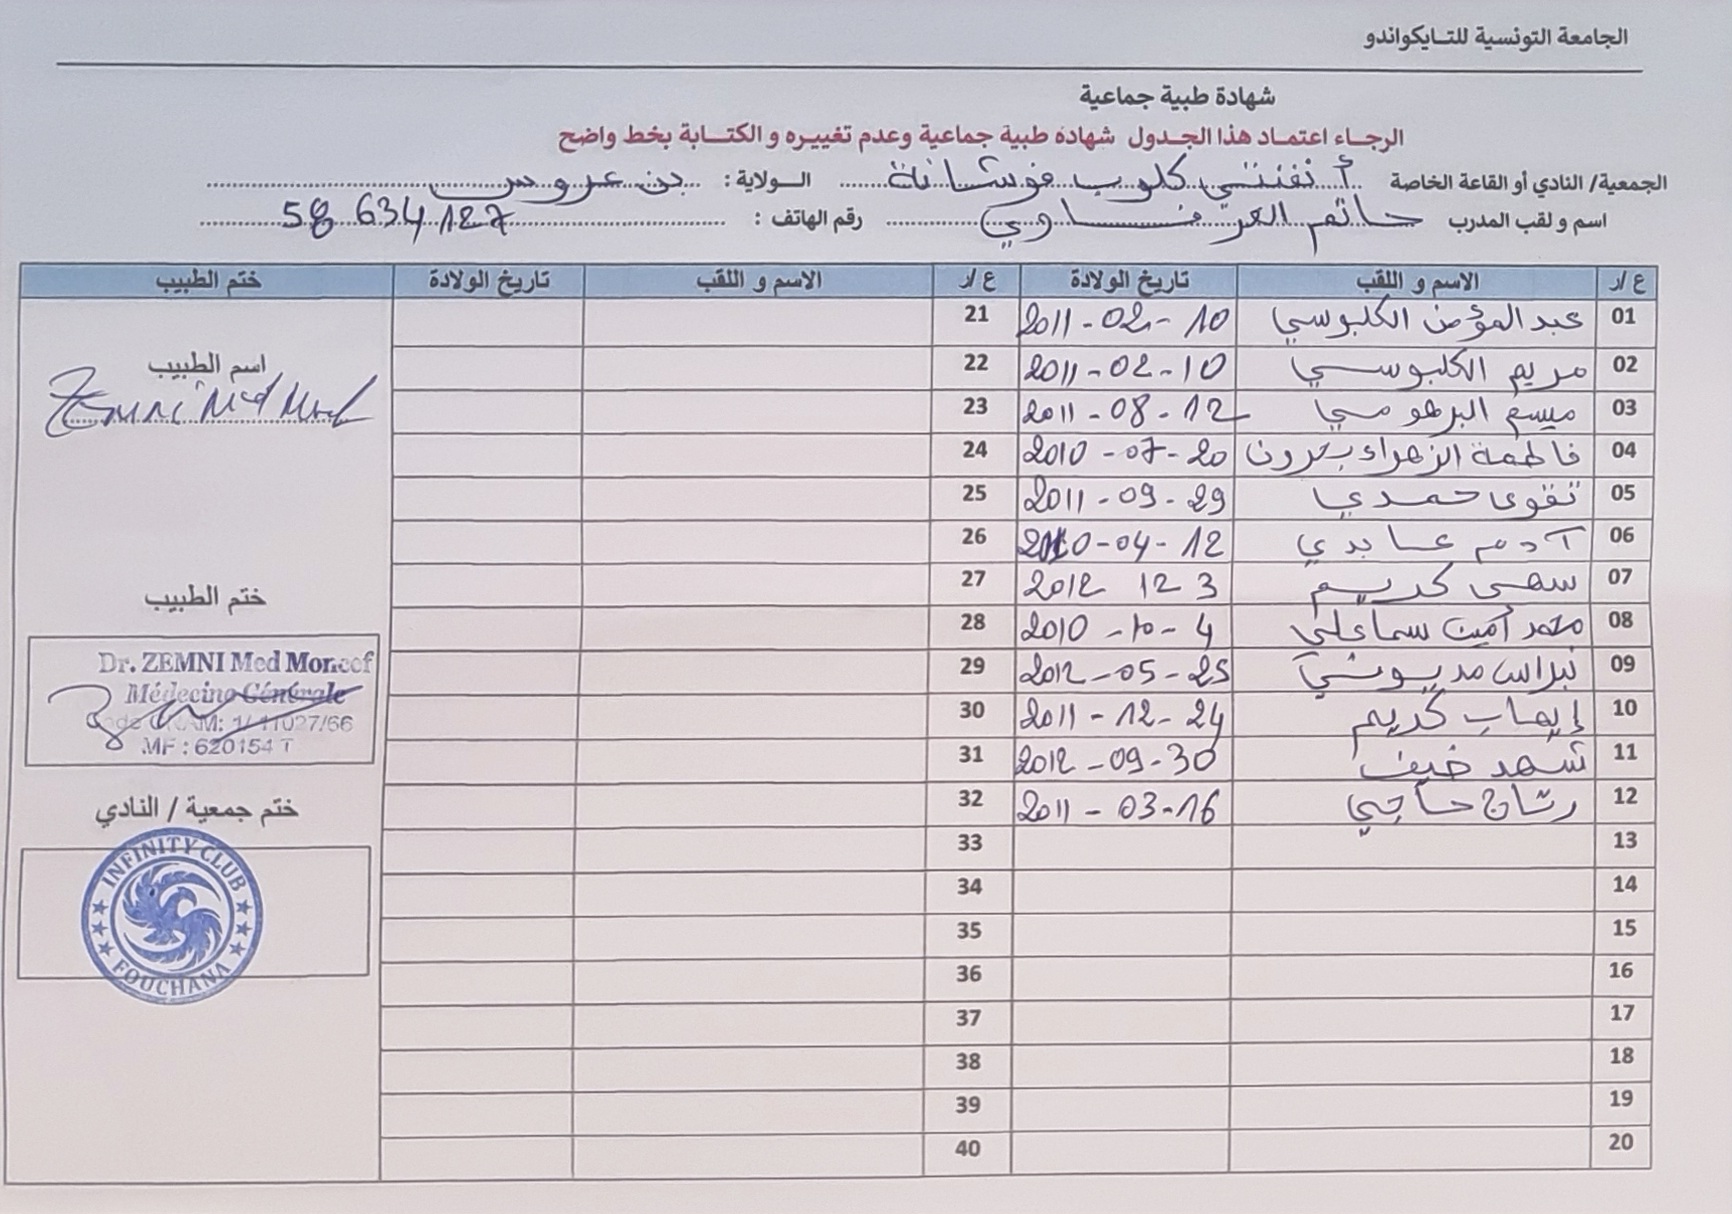 الجامعة التونسية للتـايكواندو
شهادة طبية جماعية
الرجـاء اعتمـاد هذا الجـدول شهادة طبية جماعية وعدم تغييره و الكتـابة بخط واضح
الجمعية/ النادي أو القاعة الخاصة أنفنتي كلوب فوشانة الـولاية: بن عروس
اسم و لقب المدرب حاتم العرفاوي رقم الهاتف : 58 634 127
ع/ر الاسم و اللقب تاريخ الولادة ع/ر الاسم و اللقب تاريخ الولادة ختم الطبيب
01 عبد المؤمن الكلبوسي 2011-02-10 21
02 مريم الكلبوسي 2011-02-10 22
03 ميسم البرهومي 2011-08-12 23
04 فاطمة الزهراء 2010-07-20 24
05 تقوى حمدي 2011-09-29 25
06 آدم عابدي 2010-04-12 26
07 سهى كريم 2012 12 3 27
08 محمد أمين سماعلي 2010-10-4 28
09 نبراس مديوني 2012-05-25 29
10 إيهاب كريم 2011-12-24 30
11 شهد ضيف 2012-09-30 31
12 رشان حاجي 2011-03-16 32
13 33
14 34
15 35
16 36
17 37
18 38
19 39
20 40
اسم الطبيب
Zemni Med
ختم الطبيب
Dr. ZEMNI Med Moncef
Médecine Générale
Code CNAM: 1/11027/66
MF : 620154 T
ختم جمعية / النادي
INFINITY CLUB
FOUCHANA